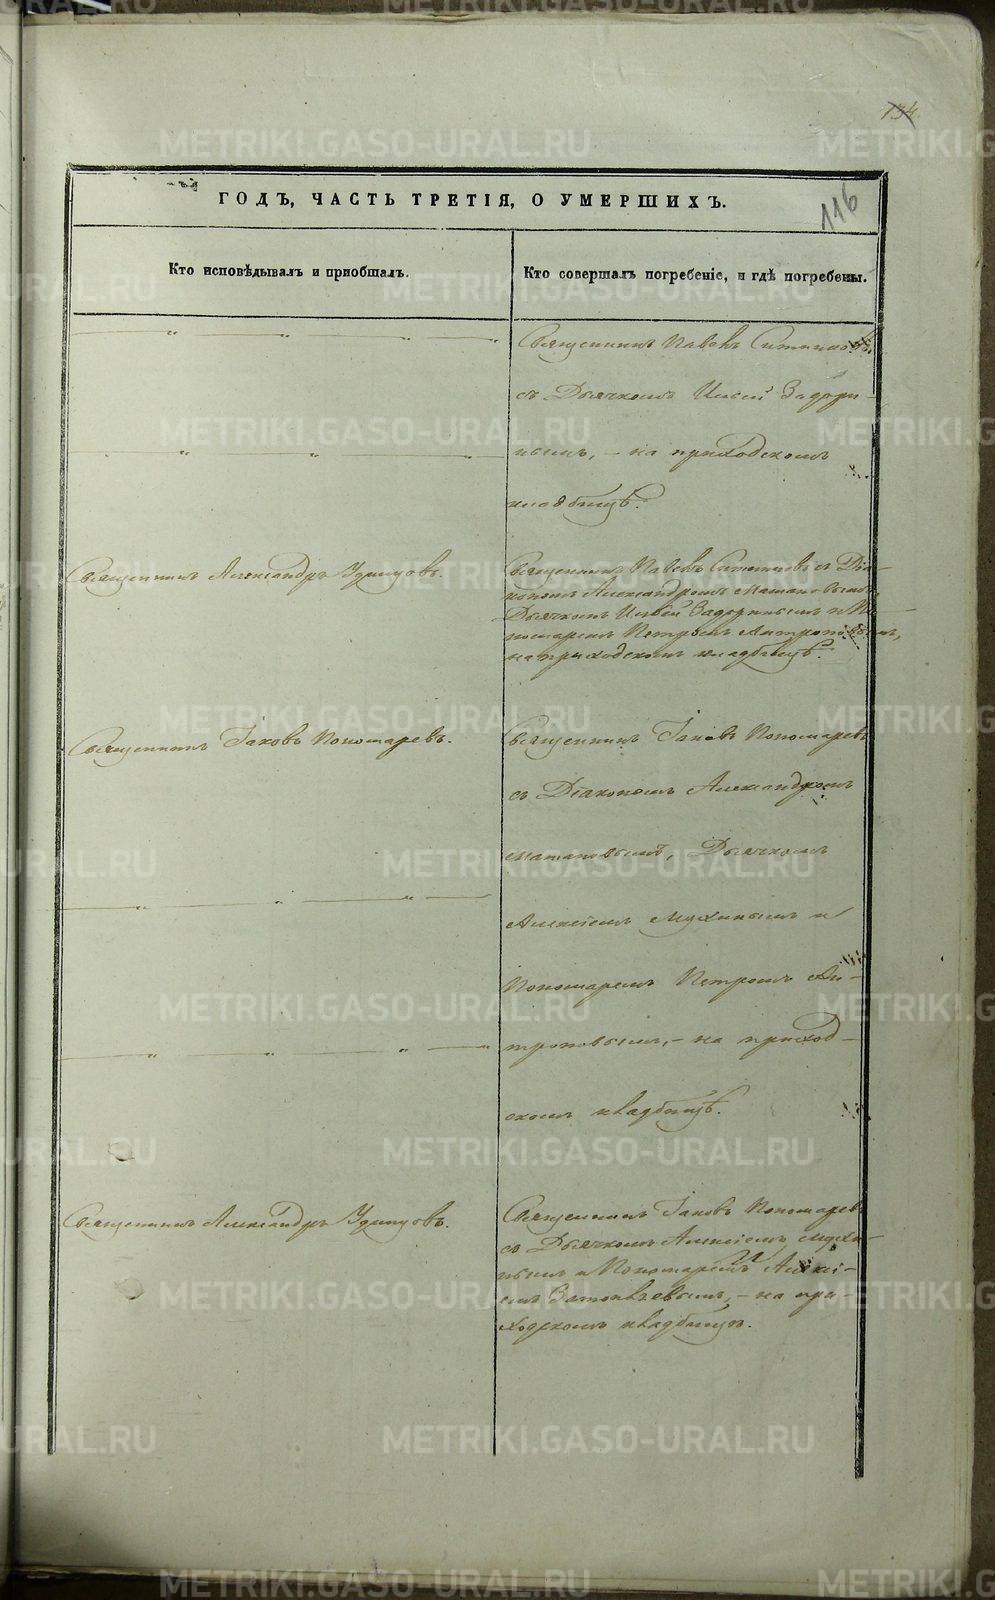 134
116
ГОДЪ, ЧАСТЬ ТРЕТІЯ, О УМЕРШИХЪ.
Кто исповѣдывалъ и пріобщалъ.
Кто совершалъ погребеніе, и гдѣ погребены.
Священникъ Павелъ Ситниковъ
съ Дьячкомъ Ильей Задори-
нымъ, - на приходскомъ
кладбищѣ.
Священникъ Александръ Удинцовъ.
Священникъ Павелъ Ситниковъ съ Діа-
кономъ Александромъ
Дьячкомъ Ильей Задоринымъ и По-
номаремъ Петромъ Антроповымъ,
на приходскомъ кладбищѣ.
Священникъ Іаковъ Пономаревъ.
Священникъ Іаковъ Пономаревъ
съ Діакономъ Александромъ
Дьячкомъ
Алексіемъ Мухинымъ и
Пономаремъ Петромъ Ан-
троповымъ, - на приход-
скомъ кладбищѣ.
Священникъ Александръ Удинцовъ.
Священникъ Іаковъ Пономаревъ
съ Дьячкомъ Алексіемъ Мухи-
нымъ и Пономаремъ Алексі-
емъ - на при-
ходскомъ кладбищѣ.
METRIKI.GASO-URAL.RU